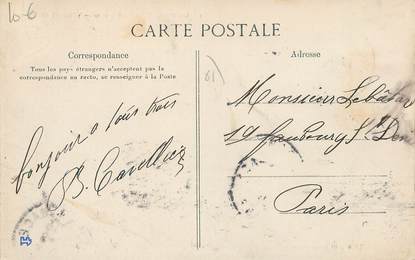 10-6
CARTE POSTALE
Correspondance
Tous les pays étrangers n'acceptent pas la
correspondance au recto, se renseigner à la Poste
Adresse
61
bonjour a tous trois
B.
Monsieur
19 faubourg St Den
Paris